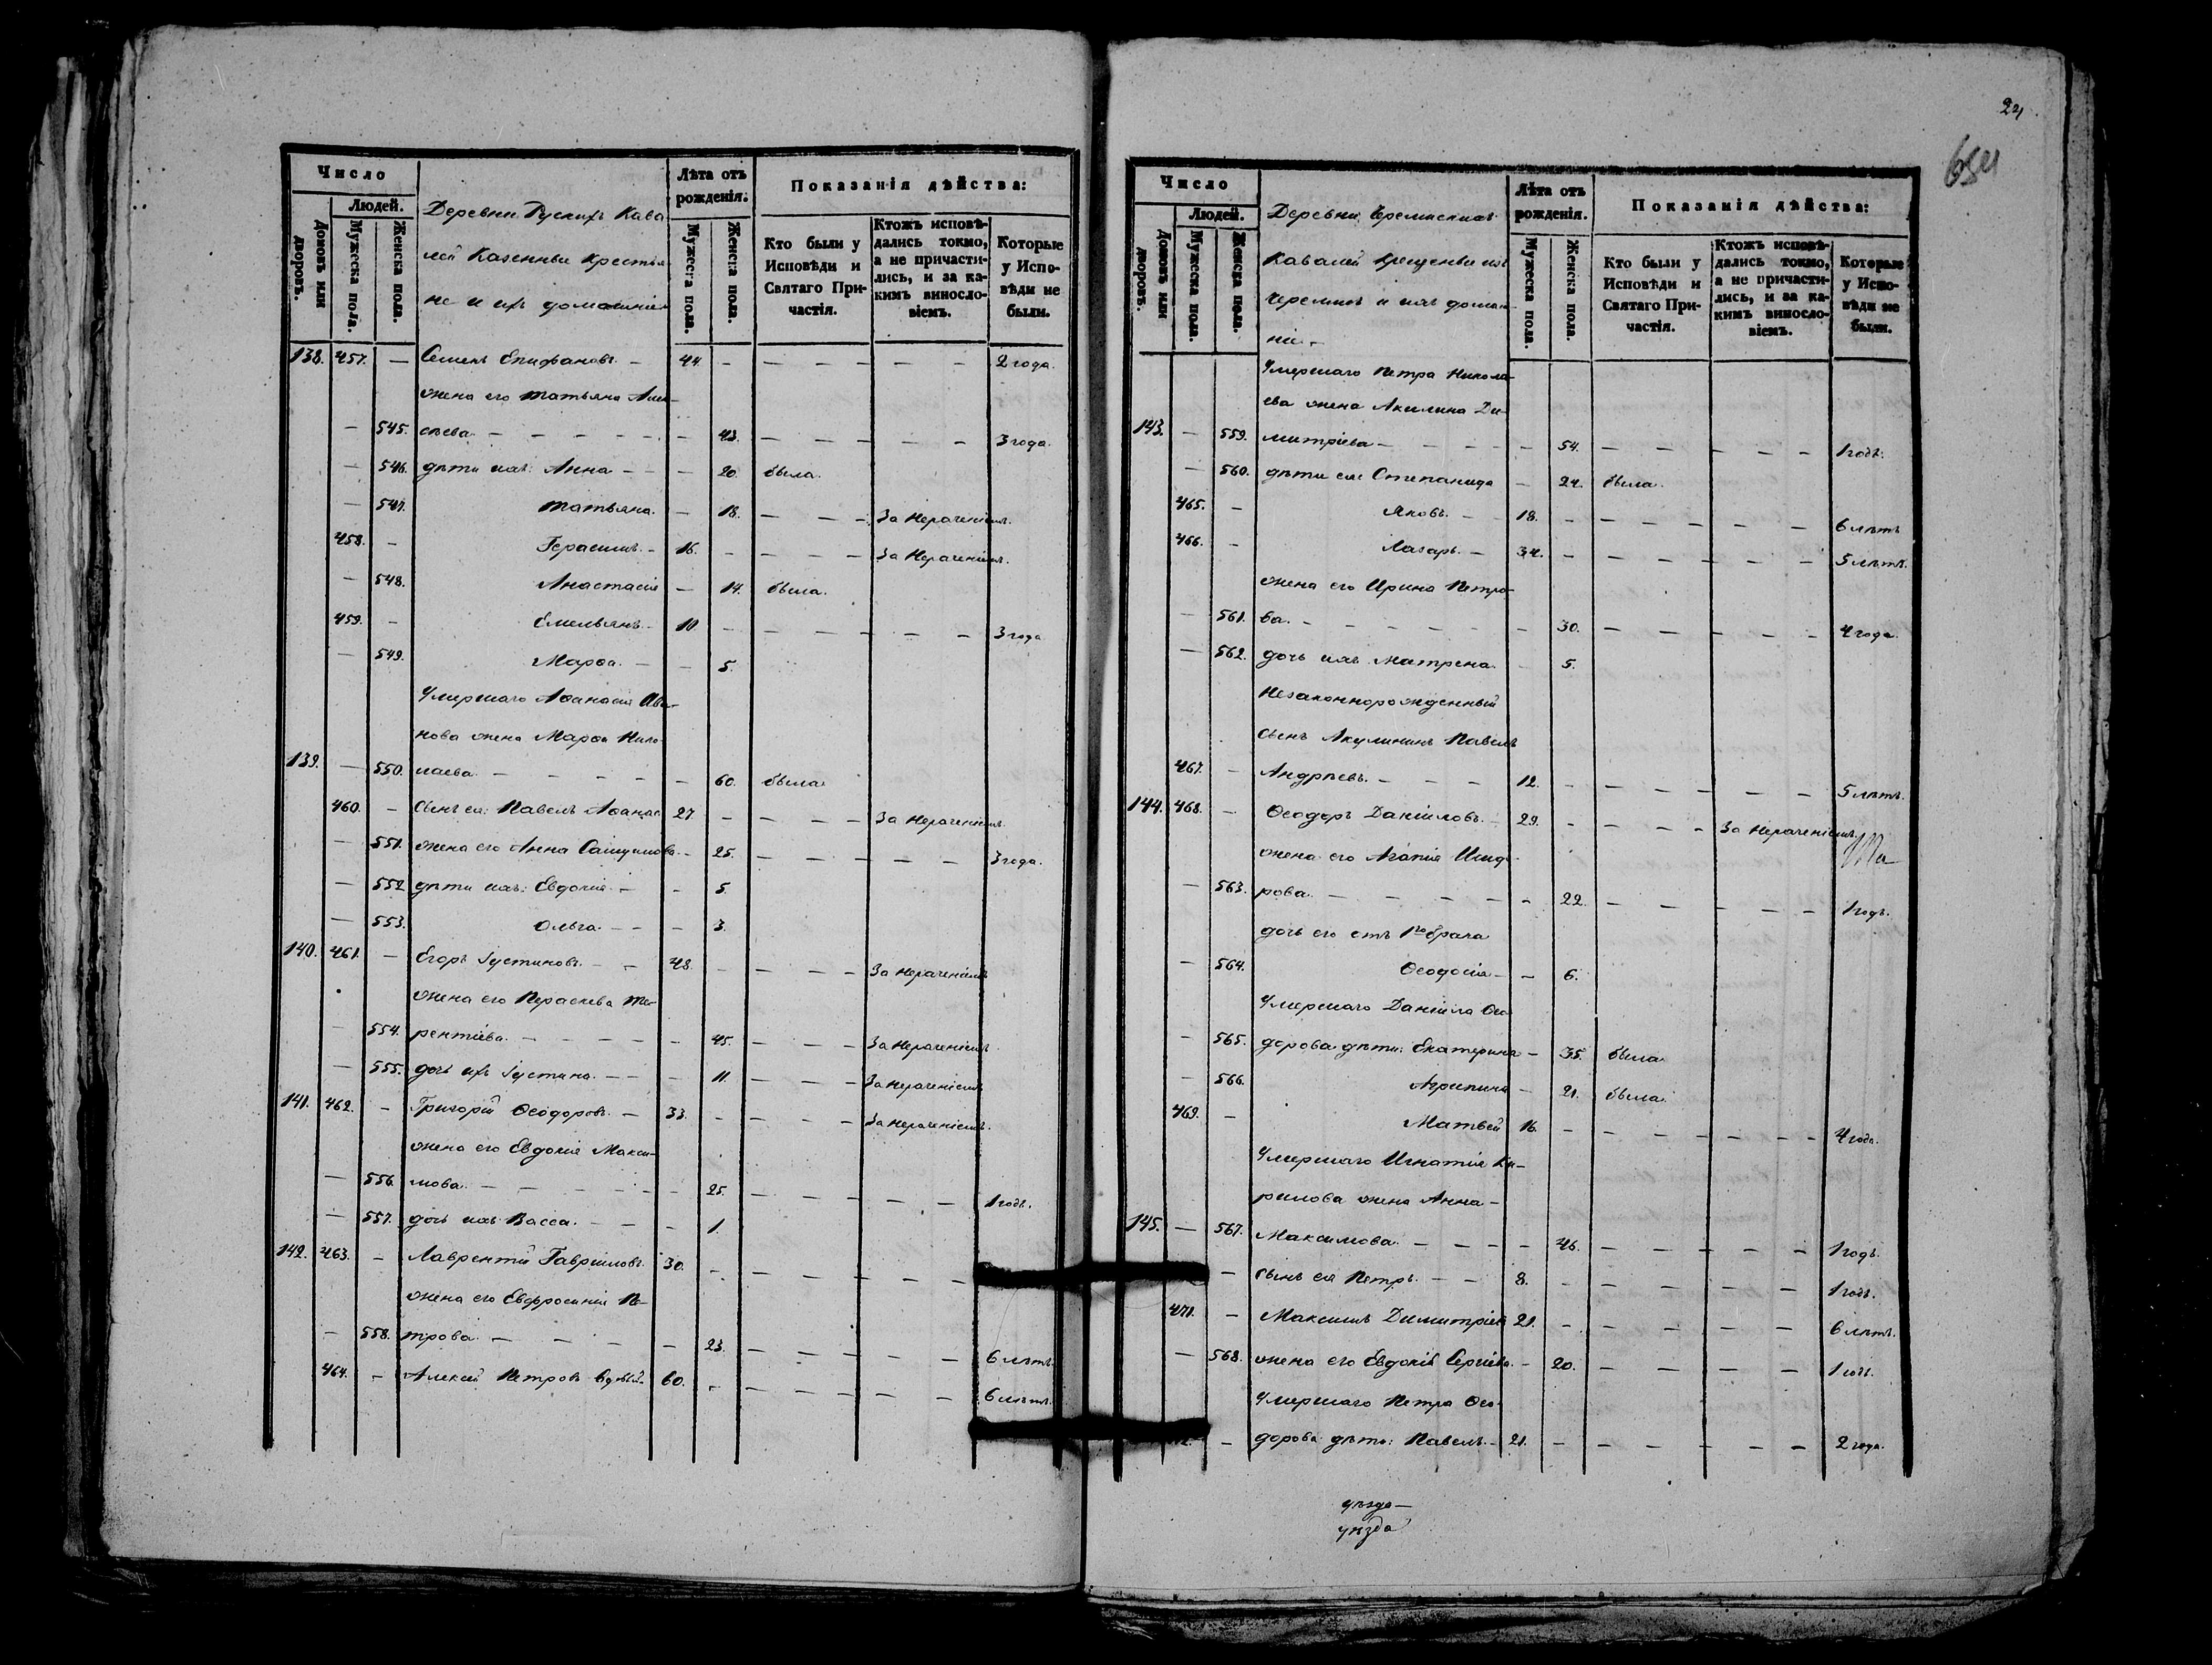 24
654
Число
Людей.
Домовъ или дворовъ.
Мужеска пола.
Женска пола.
Деревни Рускихъ Кава
лей Казенные Крестья
не и ихъ домашніе
Лѣта отъ рожденія.
Мужеска пола.
Женска пола.
Показанія дѣйства:
Кто были у Исповѣди и Святаго Причастія.
Ктожъ исповѣдались токмо, а не причастились, и за какимъ винословіемъ.
Которые у Исповѣди не были.
138. 457. — Семенъ Епифановъ — 44. — — — — — — 2 года.
жена его Татьяна Але
— 545. сѣева — — — — — 43. — — — — — 3 года.
— 546. дѣти ихъ: Анна — — — 20. была.
— 547. Татьяна. — 18. — — — За Нераченіемъ.
458. — Герасимъ. — 16. — — — — За Нераченіемъ.
— 548. Анастасія — 14. была.
459. — Емельянъ. — 10. — — — — — — 3 года
— 549. Марѳа. — — 5.
Умершаго Аѳанасія Ива
нова жена Марѳа Нико
139. — 550. лаева — — — — — 60. была
460. — Сынъ ея: Павелъ Аѳанас. 27 — — — — За Нераченіемъ
— 551. жена его Анна — 25. — — — — — 3 года.
— 552 дѣти ихъ: Евдокія — — 5.
— 553. Ольга — — — 3.
140. 461. — Егоръ Іустиновъ. — — 48. — — — — За Нераченіемъ
жена его Параскева Те
— 554. рентіева. — — — — — 45. — — — За Нераченіемъ
— 555. дочь ихъ Іустина. — — — 11. — — — За Нераченіемъ
141. 462. — Григорій Ѳеодоровъ — 33. — — — — За Нераченіемъ.
жена его Евдокія Макси—
— 556. мова. — — — — — — 25. — — — — — 1 годъ.
— 557. дочь ихъ Васса. — — — 1.
142. 463. — Лаврентій Гавріиловъ. 30. — — — — — —
жена его Евфросинія Пе—
— 558. трова — — — — — 23. — — — — — 6 лѣтъ.
464. — Алексѣй Петровъ вдовый 60. — — — — — — 6 лѣтъ.
Число
Людей.
Домовъ или дворовъ.
Мужеска пола.
Женска пола.
Деревни Черемискихъ
Кавалей Крещеные изъ
Черемисъ и ихъ домаш
ніе —
Лѣта отъ рожденія.
Мужеска пола.
Женска пола.
Показанія дѣйства:
Кто были у Исповѣди и Святаго Причастія.
Ктожъ исповѣдались токмо, а не причастились, и за какимъ винословіемъ.
Которые у Исповѣди не были.
Умершаго Петра Никола
ева жена Акилина Ди
143. — 559. митріева — — — — — 54. — — — — — 1 годъ.
— 560. дѣти ея: Степанида — 24. была.
465. — Яковъ. — — 18. — — — — — — 6 лѣтъ
466. — Лазарь. — 34. — — — — — — 5 лѣтъ.
жена его Ирина Петро
— 561. ва. — — — — — — 30. — — — — — 4 года
— 562. дочь ихъ Матрена — 5.
Незаконнорожденный
Сынъ Акулининъ Павелъ
467. — Андрѣевъ. — — — 12. — — — — — — 5 лѣтъ.
144. 468. — Ѳеодоръ Даніиловъ — 29. — — — — За Нераченіемъ
жена его Агапія Исид
— 563. рова — — — — — — 22 — — — — — 1 годъ.
дочь его отъ 1го брака
— 564. Ѳеодосія — — 6.
Умершаго Даніила Ѳео
— 565. дорова дѣти: Екатерина — 35. была
— 566. Агрипина — 21. была
469. — Матвей 16. — — — — — — — 4 года.
Умершаго Игнатія Ки—
рилова жена Анна —
145. — 567. Максимова. — — — — 46. — — — — — 1 годъ.
— сынъ ея Петръ. — — 8. — — — — — — 1 годъ.
471. — Максимъ Димитріевъ 21. — — — — — — 6 лѣтъ.
— 568. жена его Евдокія Сергіева. — 20. — — — — — 1 годъ.
Умершаго Петра Ѳео
— дорова дѣти: Павелъ — 21. — — — — — — 2 года.
уѣзда —
уѣзда